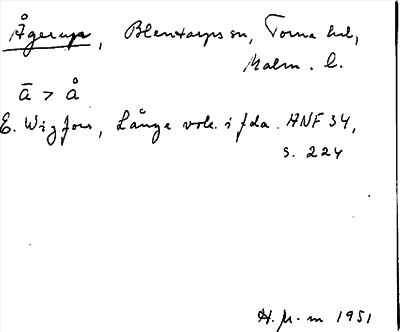 Ågerup, Blentarps sn, Torna hd,
Malm. l.
ā > å
E. Wigfors, Långa vok. i fda. ANF 34,
s. 224
1951